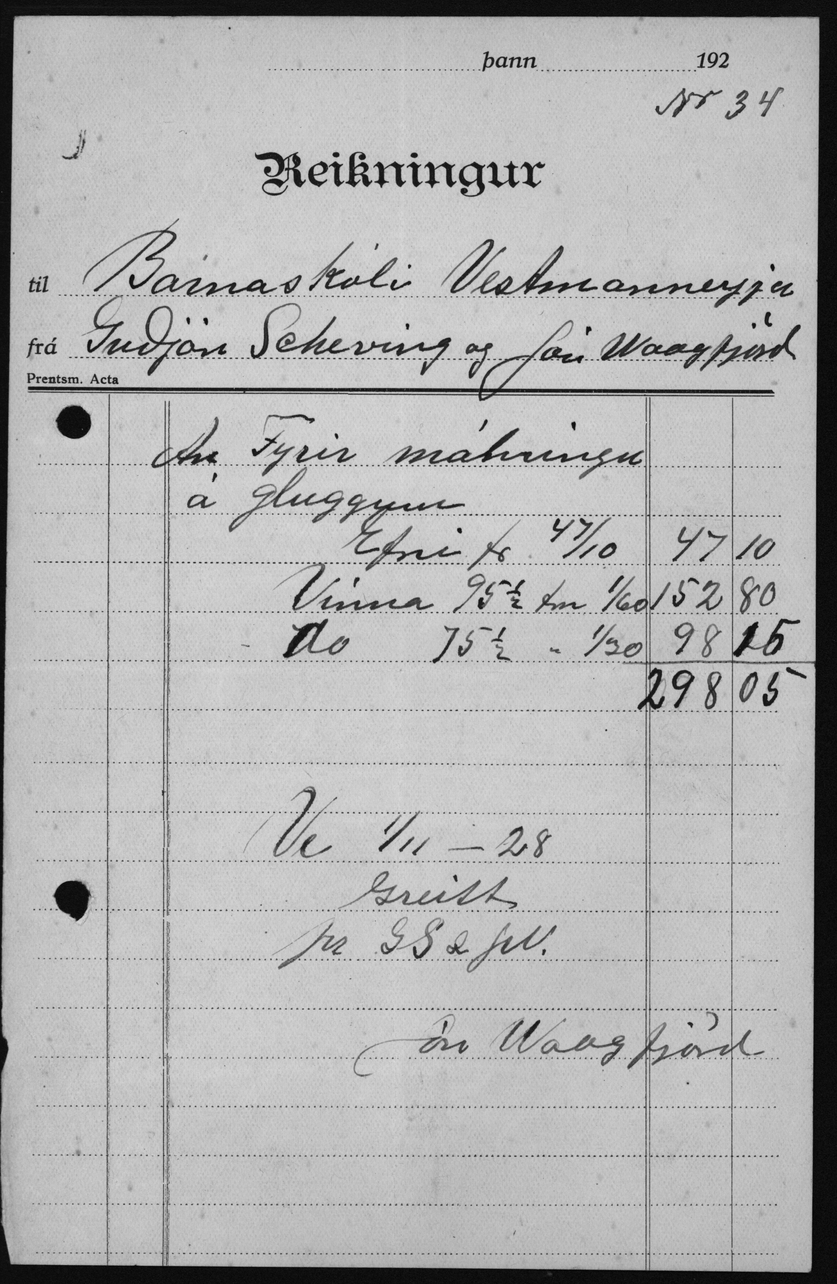 þann 192
Nr 34
Reikningur
til Barnaskóli Vestmanneyja
frá Guðjón Scheving og Jón Waagfjörd
Prentsm. Acta
Fyrir málningu
á gluggum
Efni kr 47/10 47 10
Vinna 95½ tm 1/60 152 80
Do 75½ " 1/30 98 15
298 05
Ve 1/11 – 28
Greitt
pr GS & JW.
Jón Waagfjörd